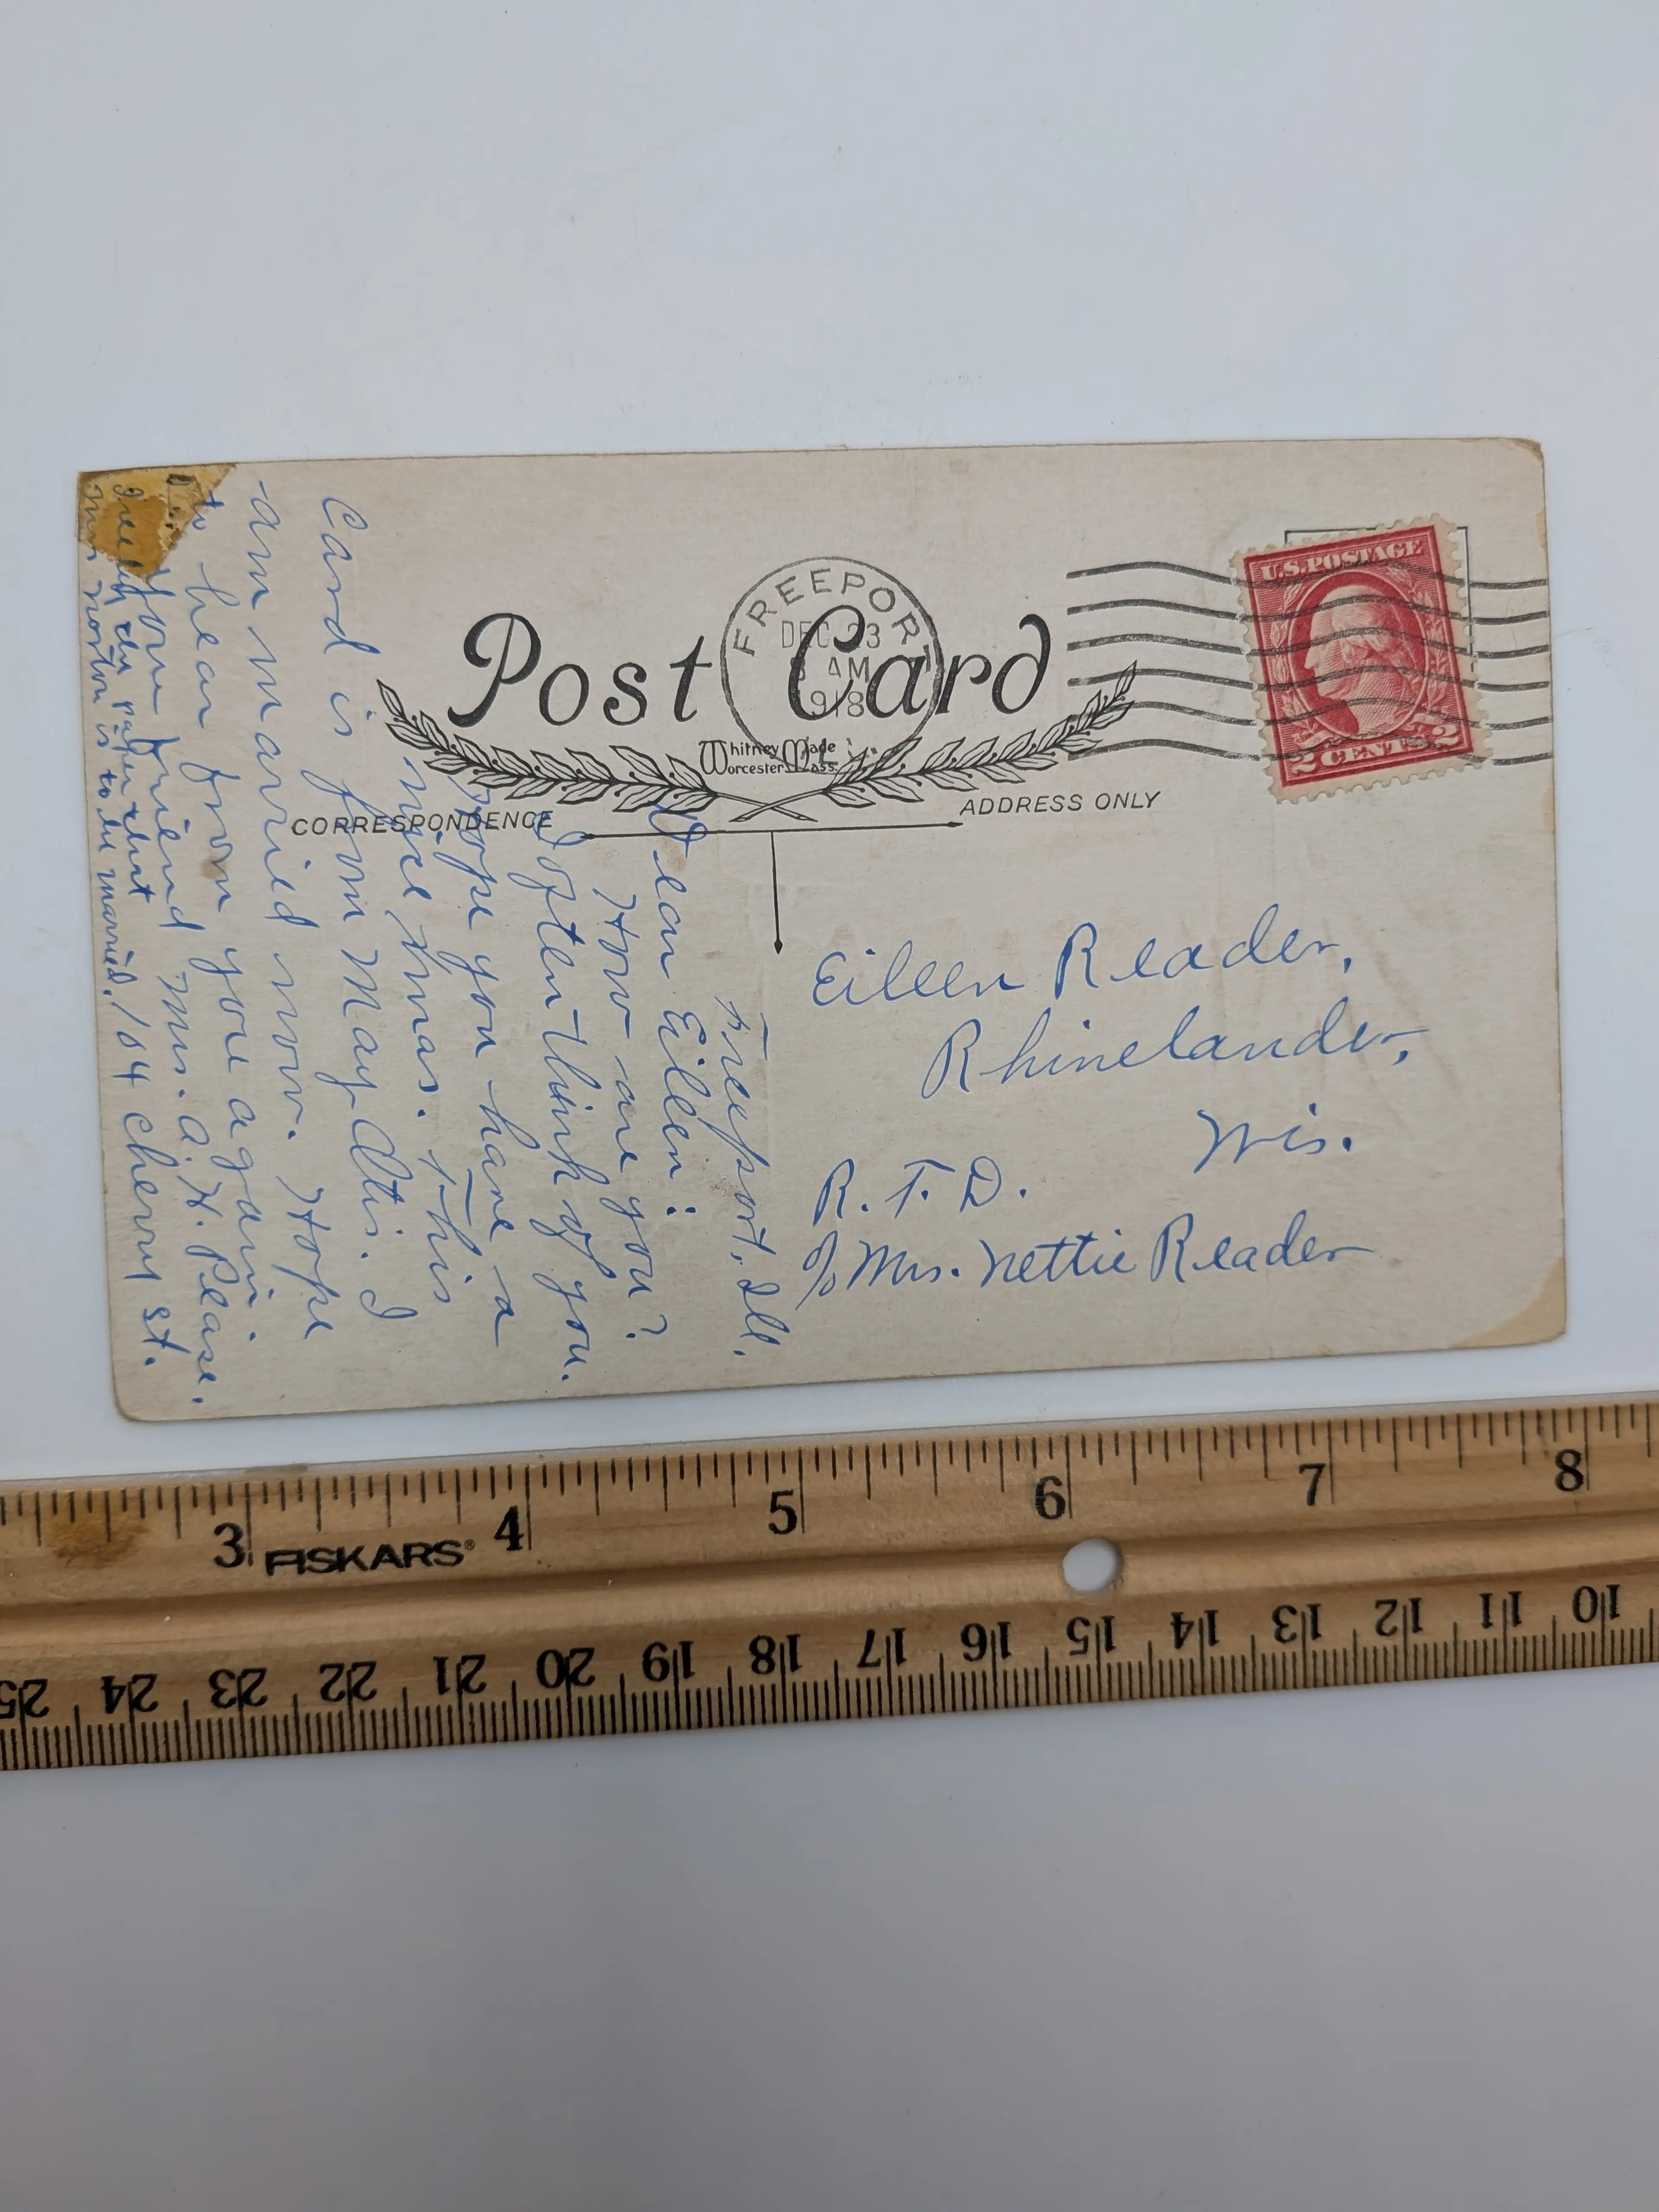 Post Card
FREEPORT
DEC 23
AM
1918
U.S. POSTAGE
2 CENTS 2
Whitney Made
Worcester Mass.
CORRESPONDENCE
ADDRESS ONLY
Eileen Reader,
Rhinelander,
Wis.
R. F. D.
c/o Mrs. Nettie Reader
Freeport, Ill.
Dear Eileen:
How are you?
I often think of you.
Hope you have a
nice Xmas. This
Card is from May Otis. I
am married now. Hope
to hear from you again.
Your friend Mrs. A. H. Pease.
104 Cherry St.
paper that
Norton is to be married.
3 4 5 6 7 8
FISKARS®
25 24 23 22 21 20 19 18 17 16 15 14 13 12 11 10